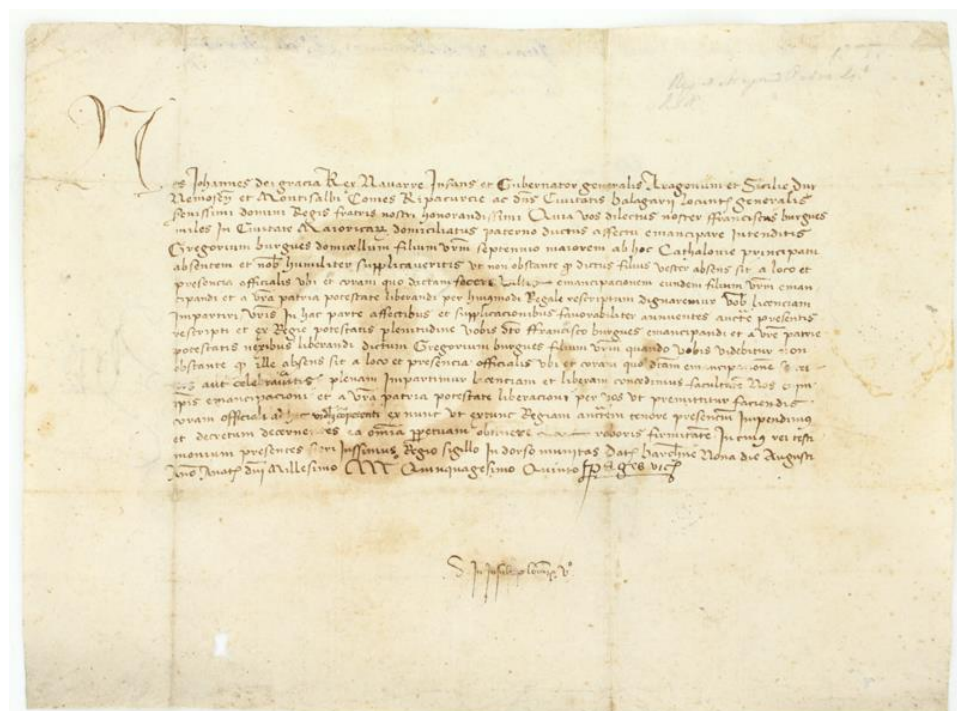 Nos Johannes dei gracia Rex Navarre Infans et Gubernator generalis Aragonum et Sicilie Dux
Nemosen̄ et Montisalbi Comes Ripacurcie ac dn̄s Civitatis balagarii locumt̄ generalis
serenissimi domini Regis fratris nostri honorandissimi Quia vos dilectus noster ffranciscus burgues
miles in Civitate Maioricaꝝ domiciliatus paterno ductus affectu emancipare Intenditis
Gregorium burgues domicellum filium vr̄m septennio maiorem ab hoc Cathalonie principatu
absentem et nob̄ humiliter supplicaveritis ut non obstante ꝙ dictus filius vester absens sit a loco et
presencia officialis ubi et coram quo dictam facere emancipacionem eundem filium vr̄m eman
cipandi et a vr̄a patria potestate liberandi per huiusmodi Regale rescriptum dignaremur vob̄ licenciam
Impartiri vr̄is In hac parte affectibus et supplicacionibus favorabiliter annuentes auct̄e presentis
rescripti et ex Regie potestatis plenitudine vobis dc̄to ffrancisco burgues emancipandi et a vr̄e patrie
potestatis nexibus liberandi dictum Gregorium burgues filium vr̄m quando vobis videbitur non
obstante ꝙ ille absens sit a loco et presencia officialis ubi et coram quo dc̄am emancipacionem
aut celebravitis plenam Impartimur licenciam et liberam concedimus facultatē Nos enim
ip̄is emancipacioni et a vr̄a patria potestate liberacioni per vos ut premittitur faciendis
coram officiali ad hoc ex nunc ut extunc Regiam auct̄em tenore presenciū Impendimus
et decretum ea om̄ia ꝑpetuam obtinere roboris firmitatē In cuius rei testi
monium presentes fieri Iussimus Regio sigillo In dorso munitas Dat̄ barchn̄e Nona die Augusti
Anno A natē dn̄i Millesimo CCCC Quinquagesimo Quinto pages vic̄